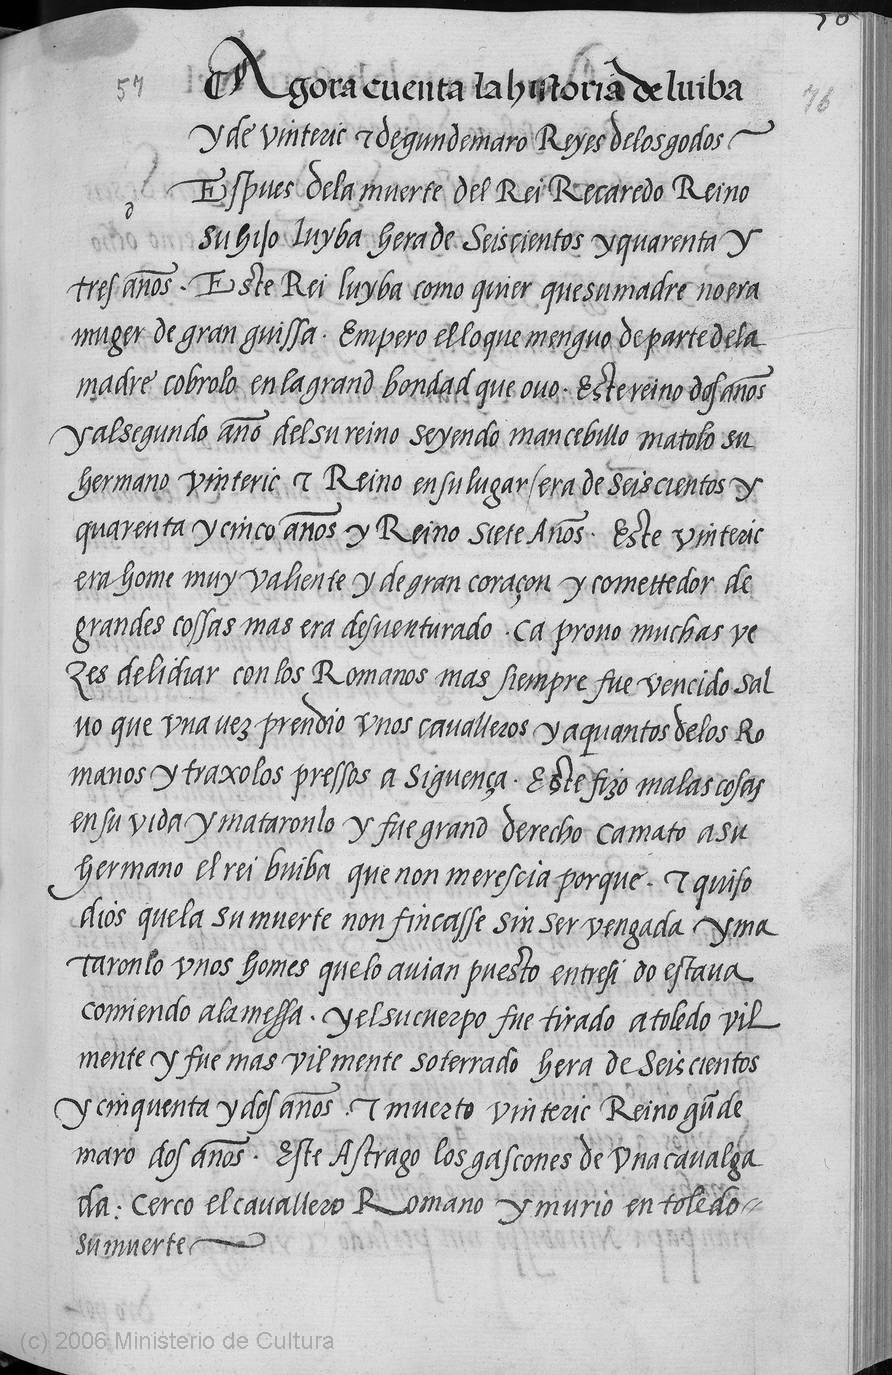 76
57
76
Agora cuenta la historia de luiba
y de vinteric ⁊ de gundemaro Reyes de los godos
d
Espues dela muerte del Rei Recaredo Reino
su hijo luyba hera de Seiscientos y quarenta y
tres años. Este Rei luyba como quier que su madre no era
muger de gran guissa. Empero el lo que menguo de parte dela
madre cobrolo en la grand bondad que ouo. Este reino dos años
y al segundo año del su reino seyendo mancebillo matolo su
hermano vinteric ⁊ Reino en su lugar / era de Seiscientos y
quarenta y cinco años y Reino Siete Años. Este vinteric
era home muy valiente y de gran coraçon y comettedor de
grandes cossas mas era desuenturado. Ca prouo muchas ve
zes de lidiar con los Romanos mas siempre fue vencido sal
uo que vna uez prendio vnos cavalleros y aquantos de los Ro
manos y traxolos pressos a Siguença. Este fizo malas cosas
en su vida y mataronlo y fue grand derecho Ca mato a su
hermano el rei buiba que non merescia porque. ⁊ quiso
dios que la su muerte non fincasse sin ser vengada y ma
taronlo vnos homes que lo auian puesto entre si do estaua
comiendo a la messa. y el su cuerpo fue tirado a toledo vil
mente y fue mas vilmente soterrado hera de Seiscientos
y cinquenta y dos años. ⁊ muerto vinteric Reino gũde
maro dos años. Este Astrago los gascones de vna caualga
da: Cerco el cauallero Romano y murio en toledo
su muerte
(c) 2006 Ministerio de Cultura